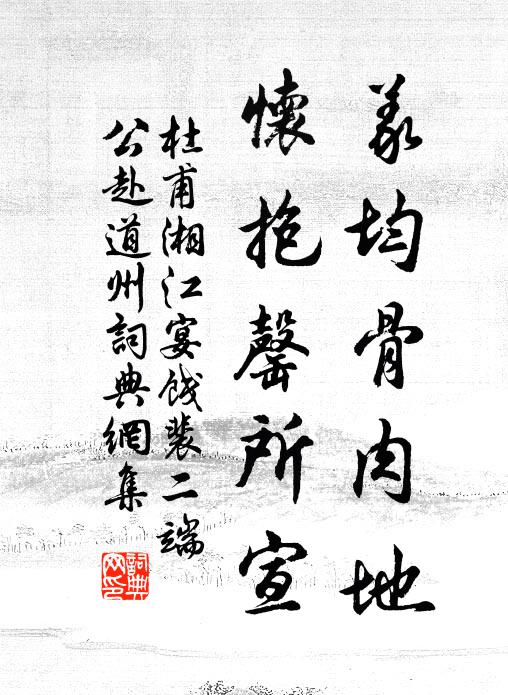 義均骨肉地
懷抱罄所宣
杜甫湘江宴餞裴二端
公赴道州詞典網集
詞典
网印